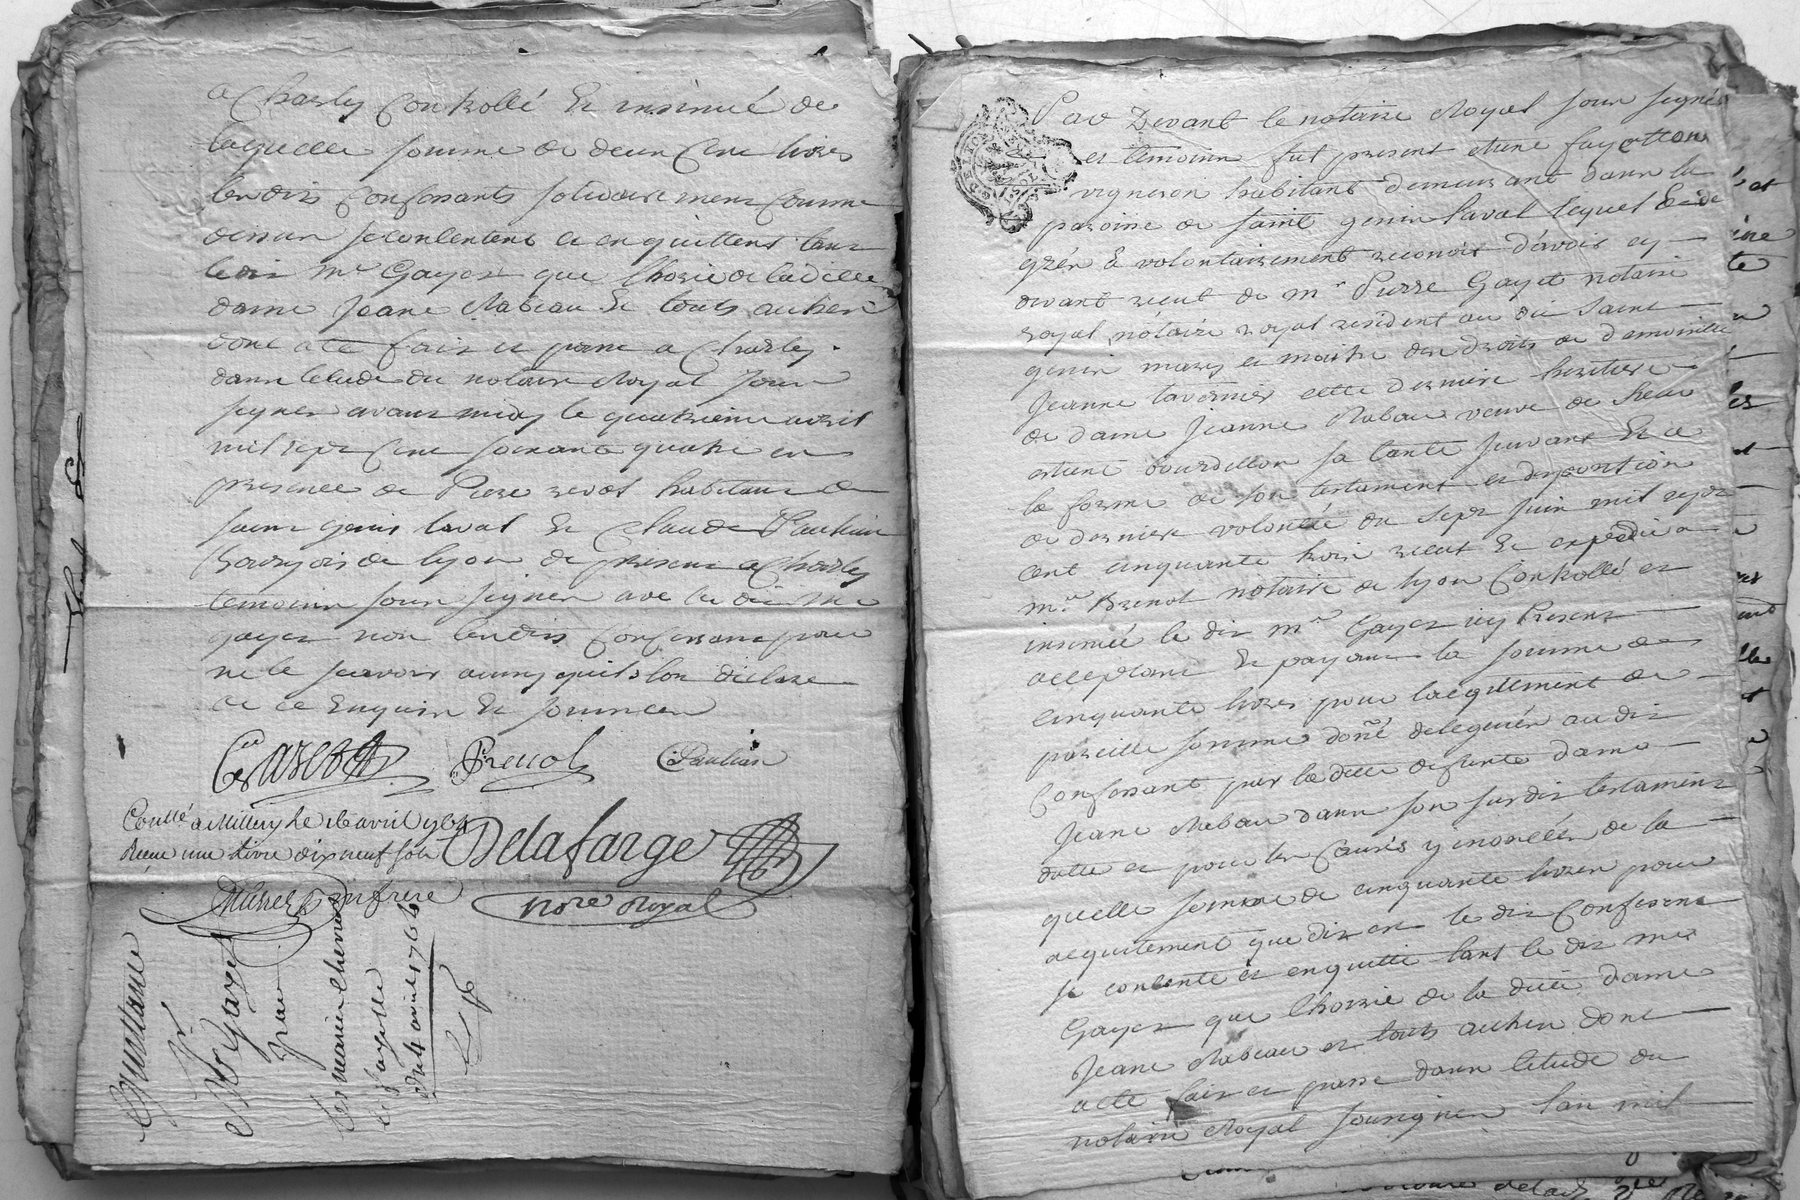 a Charly Controllé et insinué de
laquelle somme de deux Cent livres
lesdits Confessants solidairement comme
dessus se contentent et en quittent tant
ledit Me Gayet que lhoirie de laditte
dame Jeane Rabeau et touts autres
dont acte fait et passé a Charly
dans letude du notaire Royal sous
signé avant midy le quatrieme avril
mil sept Cent soixante quatre en
presence de Piere revol habitant de
saint genis laval et Claude Paulian
Bourgois de lyon de present a Charly
temoins sous signes avec ledit Me
gayet non lesdits Confessants pour
ne le scavoir ainsy quils lon déclaré
de ce Enquis et sommes
Gayet Prevol CPaulian
Conllé a Millery le 16 avril 1764
Reçu une livre dix neuf sols
Delafarge
nore Royal
Quittance
pr
Me Gayet
du 4 avril 1764
Par Devant le notaire Royal sous signé
et temoins fut present etiene fayetton
vigneron habitant demeurant dans la
paroisse de saint genis laval lequel de
gré & volontairement reconoit d'avoir cy
devant receut de Mr Pierre Gayet notaire
royal notaire royal resident au dit saint
genis mary et maitre des droits de demoiselle
Jeanne tavernier cette derniere heritiere
de dame Jeanne Rabeau veuve de sieur
etiene bourdillon sa tante suivant et a
la forme de son testament et disposition
de derniere volonté du sept Juin mil sept
cent cinquante trois receut et expedié a
me Brenot notaire de lyon Controllé et
insinué le dit me Gayet icy Present
acceptant et payant la somme de
cinquante livres pour lacquittement de
pareille somme donné deleguée au dit
Confessant par la ditte defunte dame
Jeane Rabeau dans son susdit testament
datté et pour les causes y inoncées de la
quelle somme de cinquante livres pour
acquitement que dit est le dit Confessant
se contente et en quitte tant le dit me
Gayet que lhoirie de la ditte dame
Jeane Rabeau et touts autres dont
acte fait et passé dans letude du
notaire Royal sousigné lan mil